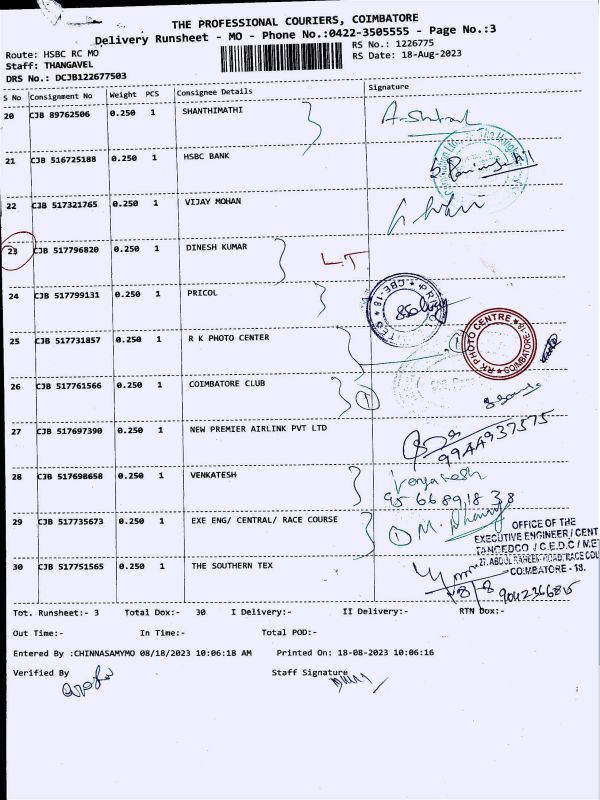 THE PROFESSIONAL COURIERS, COIMBATORE
Delivery Runsheet - MO - Phone No.:0422-3505555 - Page No.:3
Route: HSBC RC MO
RS No.: 1226775
Staff: THANGAVEL
RS Date: 18-Aug-2023
DRS No.: DCJB122677503
S No Consignment No Weight PCS Consignee Details Signature
20 CJB 89762506 0.250 1 SHANTHIMATHI
21 CJB 516725188 0.250 1 HSBC BANK
22 CJB 517321765 0.250 1 VIJAY MOHAN
23 CJB 517796820 0.250 1 DINESH KUMAR L.T
24 CJB 517799131 0.250 1 PRICOL
25 CJB 517731857 0.250 1 R K PHOTO CENTER 1
RK PHOTO CENTRE COIMBATORE-18.
26 CJB 517761566 0.250 1 COIMBATORE CLUB 1
27 CJB 517697390 0.250 1 NEW PREMIER AIRLINK PVT LTD
9944937575
28 CJB 517698658 0.250 1 VENKATESH Venkatesh
95 66 89 18 38
29 CJB 517735673 0.250 1 EXE ENG/ CENTRAL/ RACE COURSE 1 M.
OFFICE OF THE
EXECUTIVE ENGINEER / CENT
TANGEDCO / C.E.D.C / MET
27, ABDUL RAHEEM ROAD, RACE COU
COIMBATORE - 18.
30 CJB 517751565 0.250 1 THE SOUTHERN TEX
18/8 9042366815
Tot. Runsheet:- 3 Total Dox:- 30 I Delivery:- II Delivery:- RTN Dox:-
Out Time:- In Time:- Total POD:-
Entered By :CHINNASAMYMO 08/18/2023 10:06:18 AM Printed On: 18-08-2023 10:06:16
Verified By Staff Signature